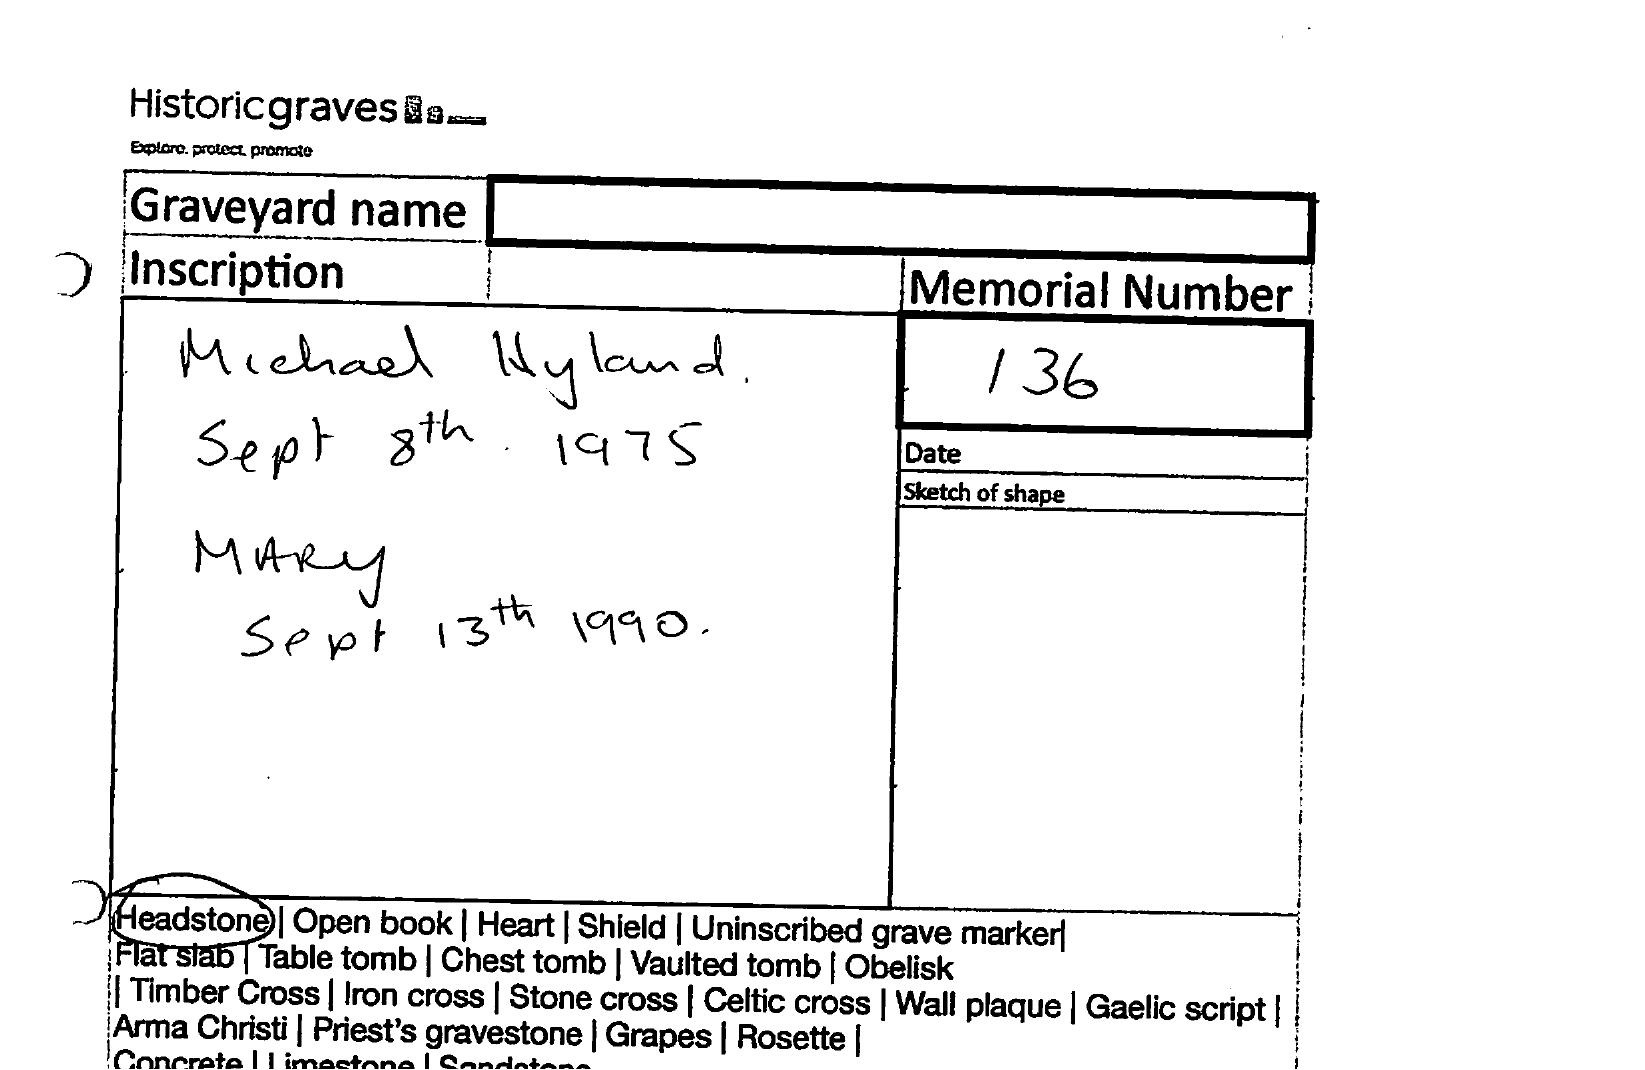 Historicgraves
Explore. protect. promote
Graveyard name
Inscription
Memorial Number
Michael Hyland.
Sept 8th. 1975
MARY
Sept 13th 1990.
136
Date
Sketch of shape
Headstone | Open book | Heart | Shield | Uninscribed grave marker|
Flat slab | Table tomb | Chest tomb | Vaulted tomb | Obelisk
| Timber Cross | Iron cross | Stone cross | Celtic cross | Wall plaque | Gaelic script |
Arma Christi | Priest's gravestone | Grapes | Rosette |
Concrete | Limestone | Sandstone